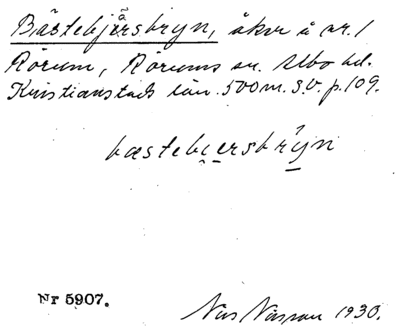 Bästebjärsbryn, åker å nr. 1
Rörum, Rörums sn. Albo hd.
Kristianstads län. 500 m. S.V. p. 109.
bæstebi̯ersbrýn
Nr 5907.
Nils Nilsson 1930.